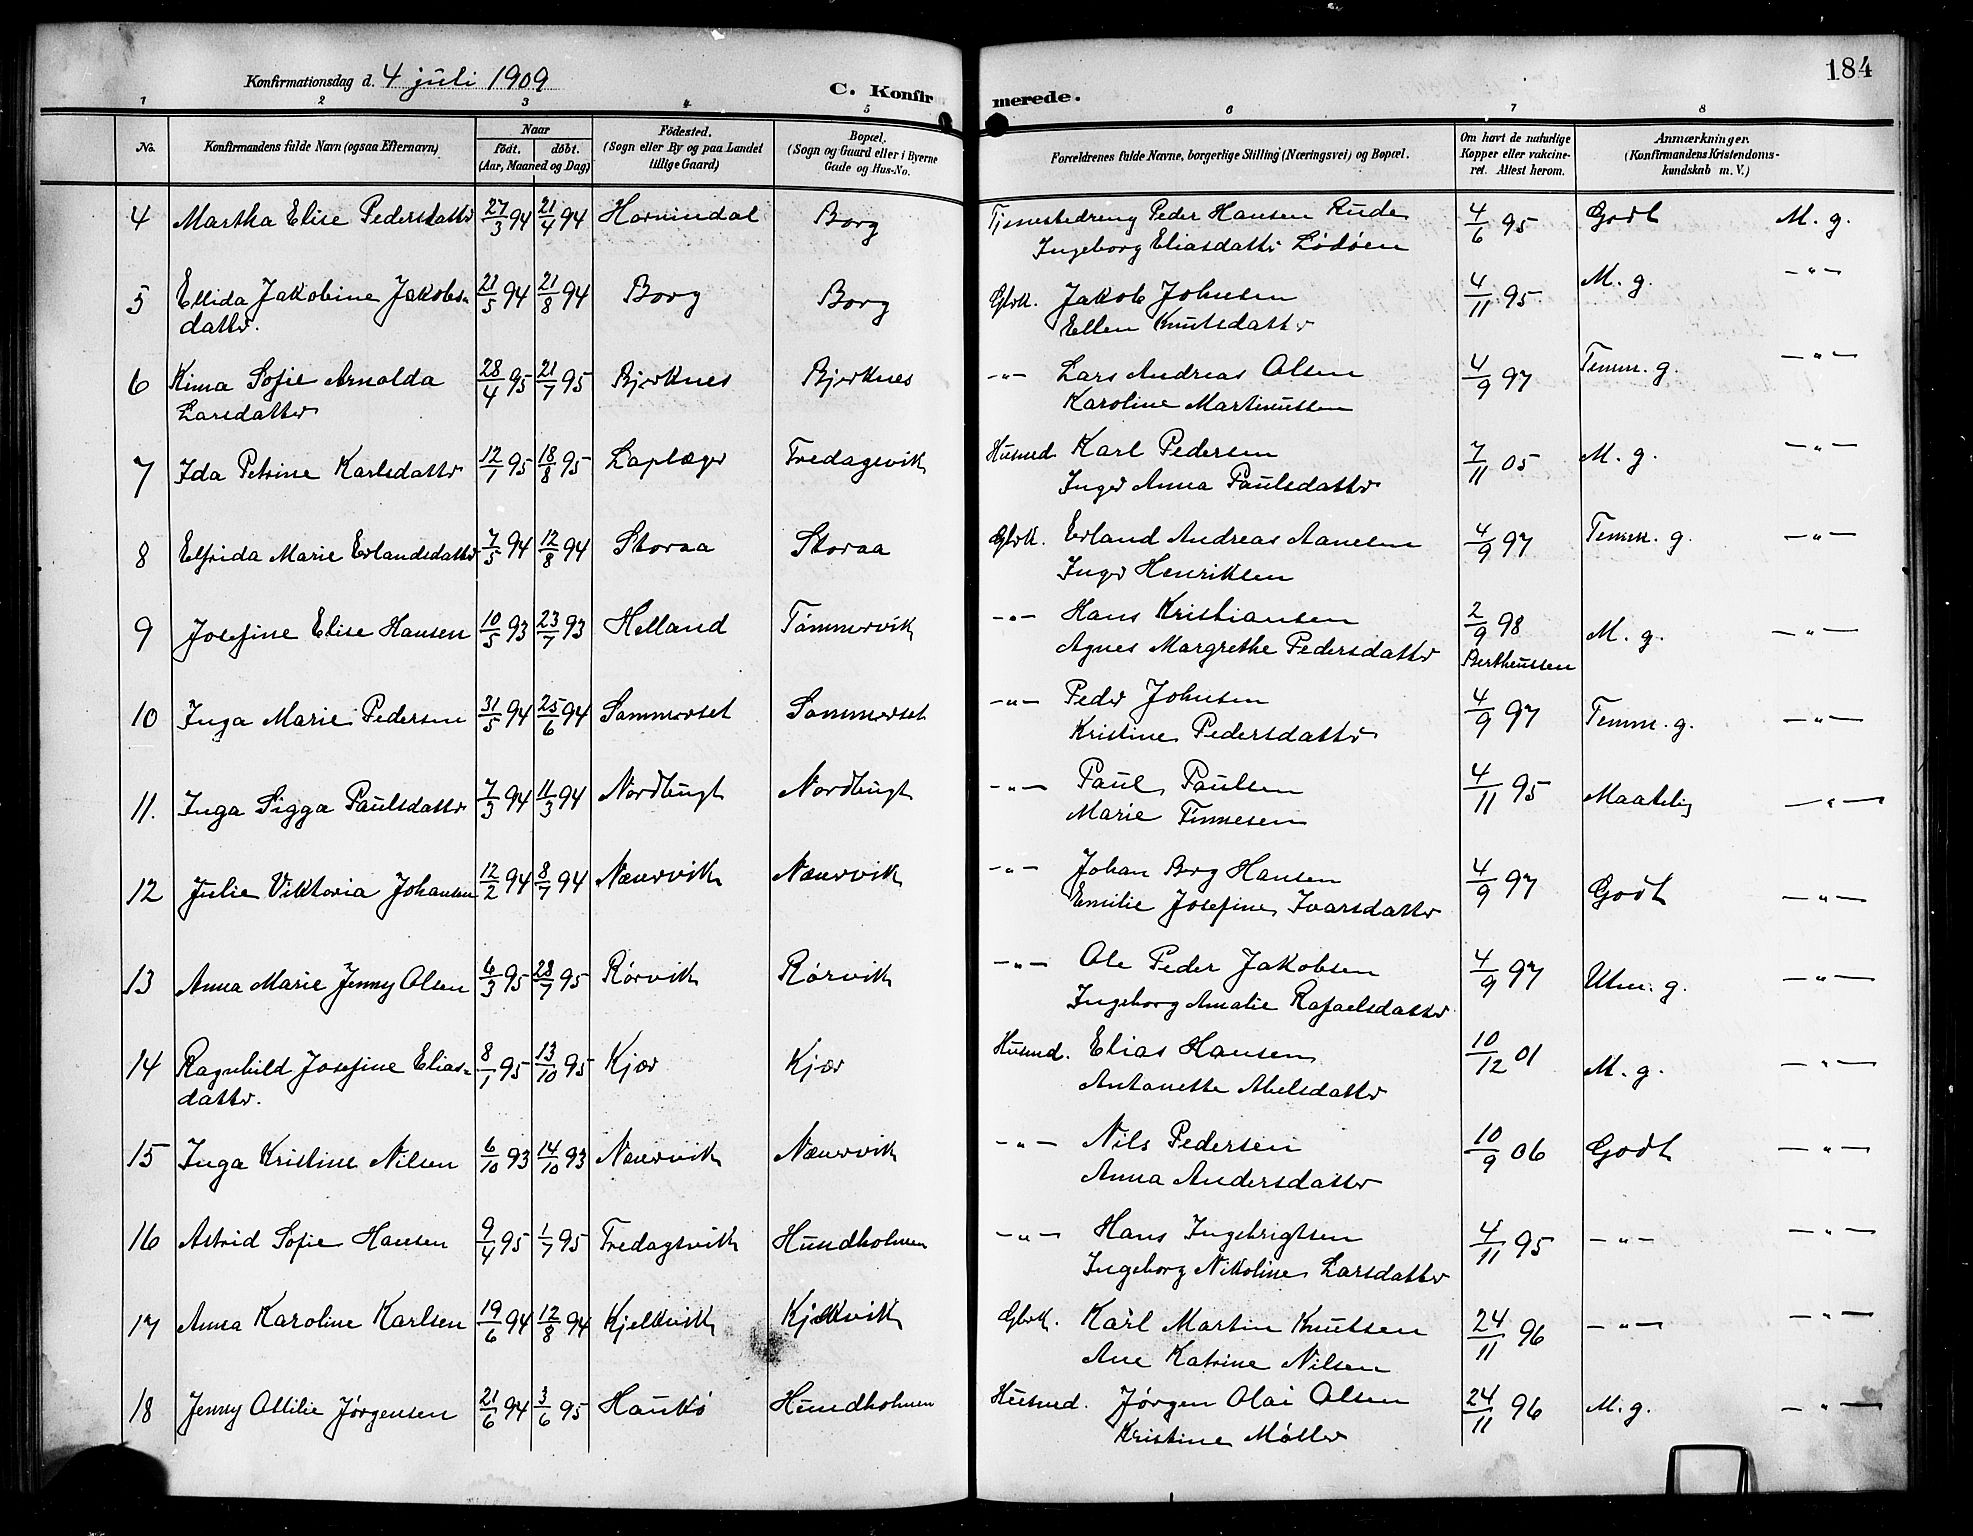 184
Konfirmationsdag d. 4 juli 1909
C. Konfirmerede.
1 2 3 4 5 6 7 8
No.
Konfirmandens fulde Navn (ogsaa Efternavn)
Naar
födt. döbt.
(Aar, Maaned og Dag)
Födested.
(Sogn eller By og paa Landet
tillige Gaard)
Bopæl.
(Sogn og Gaard eller i Byerne
Gade og Hus-No.
Forældrenes fulde Navne, borgerlige Stilling (Næringsvei) og Bopæl.
Om havt de naturlige
Kopper eller vakcine-
ret. Attest herom.
Anmærkninger.
(Konfirmandens Kristendoms-
kundskab m. V.)
4 Martha Elise Pedersdattr 27/3 94 21/4 94 Hornindal Borg Tjenestedreng Peder Hansen Rude 4/6 95 Godt M. g.
Ingeborg Eliasdattr Lødöen
5 Ellida Jakobine Jakobs- 21/5 94 21/8 94 Borg Borg Gbrk. Jakob Johnsen 4/11 95 M. g. —"—
dattr. Ellen Knutsdattr
6 Kima Sofie Arnolda 28/4 95 21/7 95 Bjerknes Bjerknes —"— Lars Andreas Olsen 4/9 97 Temm. g. —"—
Larsdattr Karoline Martinussen
7 Ida Petrine Karlsdattr 12/1 95 18/8 95 Laplæger Fredagsvik Husmd. Karl Pedersen 7/11 05 M. g. —"—
Inger Anna Paulsdattr
8 Elfrida Marie Erlandsdattr 7/5 94 12/8 94 Storaa Storaa Gbrk. Erland Andreas Aanesen 4/9 97 Temm. g. —"—
Inger Henriksen
9 Josefine Elise Hansen 10/5 93 23/7 93 Helland Tömmervik —"— Hans Kristiansen 2/9 98 M. g. —"—
Agnes Margrethe Pedersdattr Bertheussen
10 Inga Marie Pedersen 31/5 94 25/6 94 Sommerset Sommerset —"— Peder Johnsen 4/9 97 Temm. g. —"—
Kristine Pedersdattr
11. Inga Sigga Paulsdattr 7/3 94 11/3 94 Nordbugt Nordbugt —"— Paul Paulsen 4/11 95 Maatelig —"—
Marie Finnesen
12 Julie Viktoria Johansen 12/2 94 8/7 94 Nævervik Nævervik —"— Johan Berg Hansen 4/9 97 Godt —"—
Emilie Josefine Ivarsdattr
13 Anna Marie Jenny Olsen 6/3 95 28/7 95 Rørvik Rørvik —"— Ole Peder Jakobsen 4/9 97 Utm. g. —"—
Ingeborg Amalie Rafaelsdattr
14 Ragnhild Josefine Elias- 8/1 95 13/10 95 Kjær Kjær Husmd. Elias Hansen 10/12 01 M. g. —"—
dattr. Antonette Abelsdattr
15 Inga Kristine Nilsen 6/10 93 14/10 93 Nævervik Nævervik —"— Nils Pedersen 10/9 06 Godt —"—
Anna Andersdattr
16 Astrid Sofie Hansen 9/4 95 1/7 95 Fredagsvik Hundholmen —"— Hans Ingebrigtsen 4/11 95 —"— —"—
Ingeborg Nikoline Larsdattr
17 Anna Karoline Karlsen 19/6 94 12/8 94 Kjelkvik Kjelkvik Gbrk. Karl Martin Knutsen 24/11 96 —"— —"—
Ane Katrine Nilsen
18 Jenny Ottilie Jørgensen 21/6 94 3/6 95 Haukö Hundholmen Husmd. Jørgen Olai Olsen 24/11 96 M. g. —"—
Kristine Möller